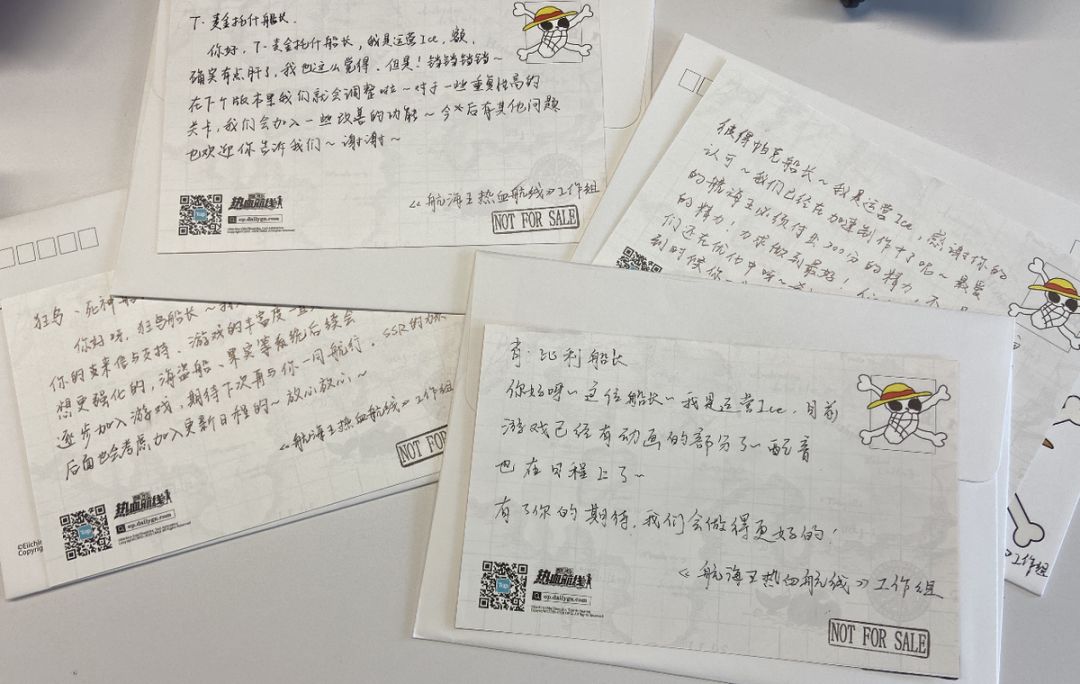 T·黄金托什船长.
你好，T·黄金托什船长，我是运营Ice，额，
确实有点肝了，我也这么觉得，但是！铛铛铛铛~
在下个版本里我们就会调整啦~对于一些重复性高的
关卡，我们会加入一些改善的功能~今后有其他问题
也欢迎你告诉我们~谢谢~
《航海王热血航线》工作组
热血航线
op.dailygn.com
NOT FOR SALE
彼得帕克船长~我是运营Ice，感谢你的
认可~我们已经在加速制作中了呢~最爱
的航海王必须付出200分的精力，不
的精力！力求做到最好！
们还在优化中呀~
到时候你
狂鸟·死神船
你好呀，狂鸟船长~
你的来信与支持，游戏的丰富度一直
想更强化的，海盗船、果实等系统后续会
逐步加入游戏，期待下次再与你一同航行，SSR的
后面也会考虑加入更新日程的~放心放心~
《航海王热血航线》工作组
NOT FOR
热血航线
op.dailygn.com
©Eiichi
Copyright
肖·比利船长
你好呀~这位船长~我是运营Ice，目前
游戏已经有动画的部分了~配音
也在日程上了~
有了你的期待，我们会做得更好的！
《航海王热血航线》工作组
热血航线
op.dailygn.com
NOT FOR SALE
》工作组